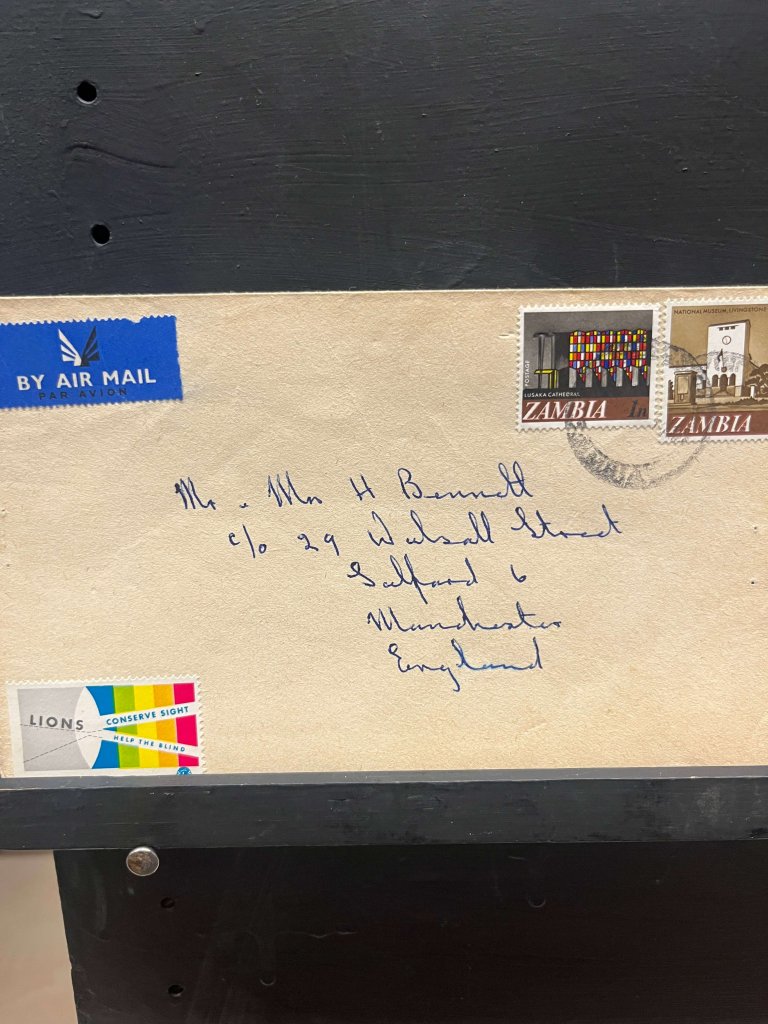 BY AIR MAIL
PAR AVION
POSTAGE
LUSAKA CATHEDRAL
ZAMBIA 1n
NATIONAL MUSEUM, LIVINGSTONE
ZAMBIA
Mr & Mrs H Bennett
c/o 29 Walsall Street
Salford 6
Manchester
England
LIONS
CONSERVE SIGHT
HELP THE BLIND